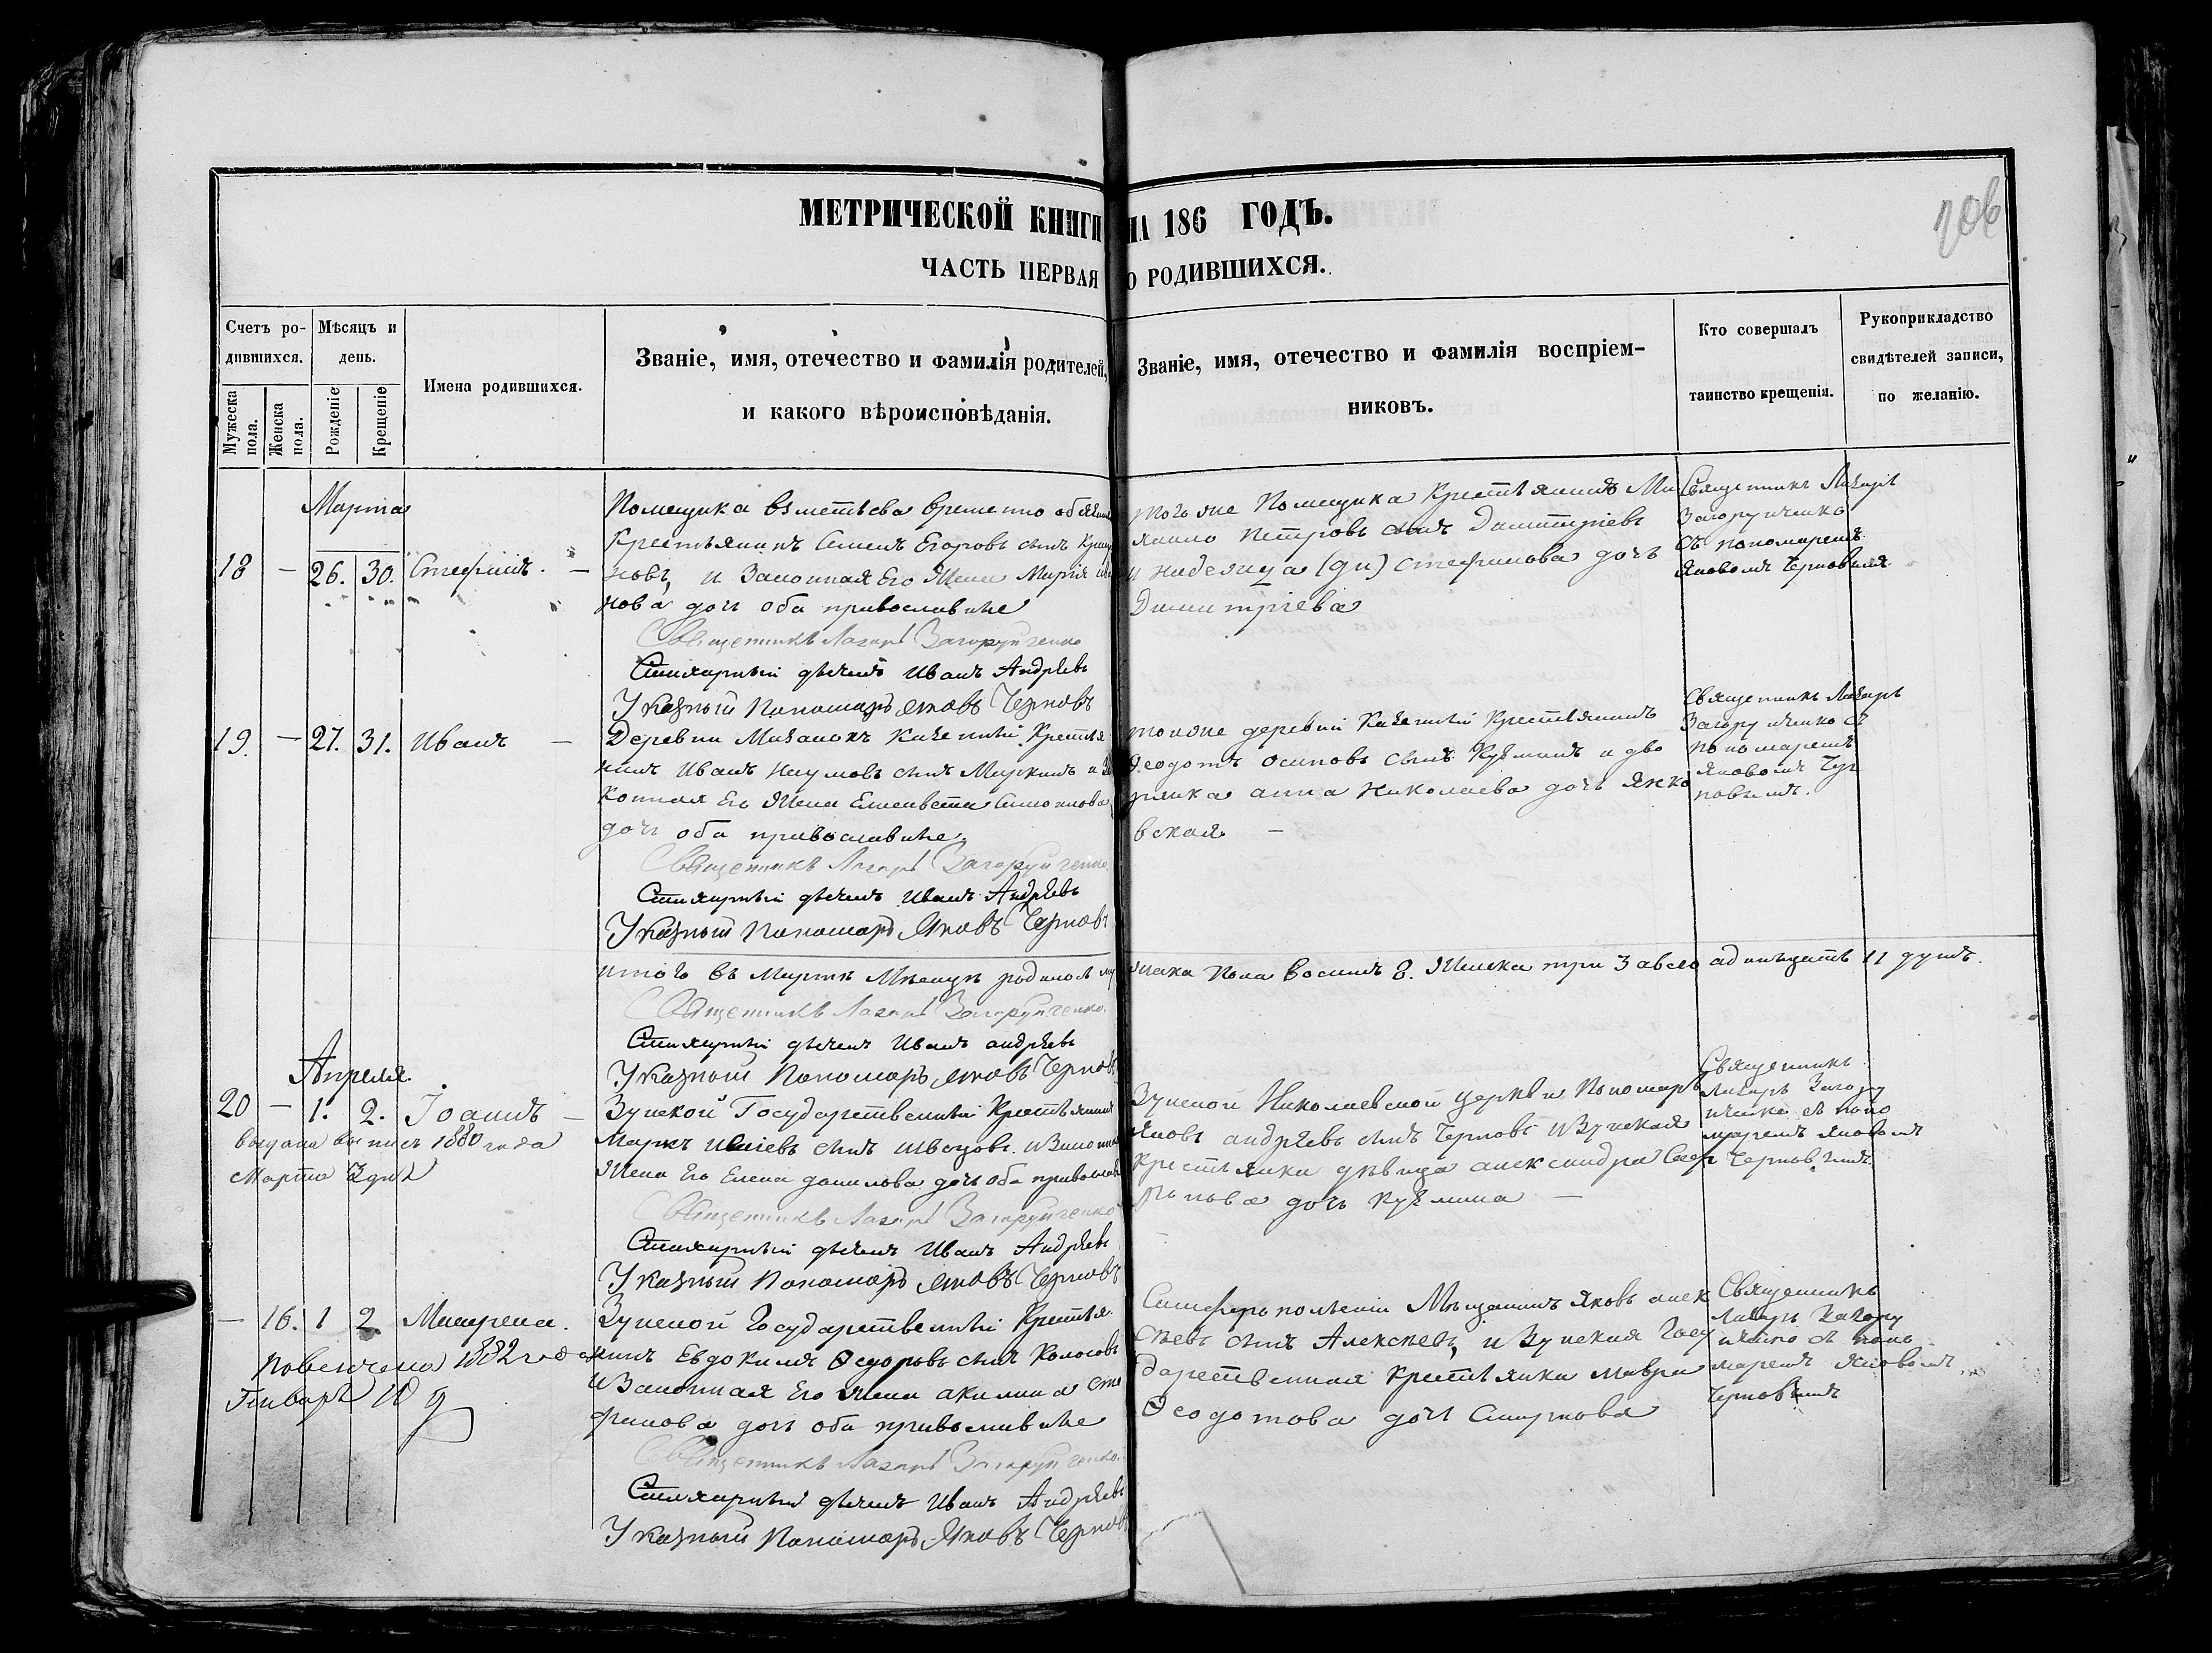 МЕТРИЧЕСКОЙ КНИГИ НА 186 ГОДЪ.
206
ЧАСТЬ ПЕРВАЯ О РОДИВШИХСЯ.
Счетъ ро-
дившихся.
Мужеска пола.
Женска пола.
Мѣсяцъ и
день.
Рожденіе
Крещеніе
Имена родившихся.
Званіе, имя, отечество и фамилія родителей,
и какого вѣроисповѣданія.
Званіе, имя, отечество и фамилія воспріем-
никовъ.
Кто совершалъ
таинство крещенія.
Рукоприкладство
свидѣтелей записи,
по желанію.
Марта
18 — 26. 30. Стефанъ. —
Помещика временно
Крестьянинъ Семенъ Егоровъ сынъ
новъ, и Законная Его Жена Марія
нова дочь оба православные
Священникъ Лазарь Загоруйченко
Стихарный дьячекъ Иванъ Андрѣевъ
Указный Пономарь Яковъ Черновъ
тогоже Помещика Крестьянинъ Ми
хаило Петровъ сынъ Димитріевъ
и Стефанова дочь
Димитріева
Священникъ Лазарь
Загоруйченко
съ пономаремъ
Яковомъ Черновымъ
19. — 27. 31. Иванъ —
Деревни Казенный Крестья
нинъ Иванъ Наумовъ сынъ Маркинъ и За
конная Его Жена Елисавета
дочь оба православные.
Священникъ Лазарь Загоруйченко
Стихарный дьячекъ Иванъ Андрѣевъ
Указный Пономарь Яковъ Черновъ
тойже деревни Казенный Крестьянинъ
Ѳеодотъ Осиповъ сынъ Кузминъ и дво
рянка Анна Николаева дочь Янко
вская —
Священникъ Лазарь
Загоруйченко съ
пономаремъ
Яковомъ Чер
новымъ.
итого въ Мартѣ Мѣсяцѣ родилось му
жска Пола восимъ 8. Женска три 3 авсего адинъцать 11 душъ.
Священникъ Лазарь Загоруйченко.
Стихарный дьячекъ Иванъ андрѣевъ
Указный Пономарь Яковъ Черновъ
Апреля.
20 — 1. 2. Іоаннъ —
выдана выпись 1880 года
Марта 3 дня
Зуйской Государственный Крестьянинъ
Маркъ сынъ Швецовъ. и Законная
Жена Его Елена данилова дочь оба православ
Священникъ Лазарь Загоруйченко
Стихарный дьячекъ Иванъ Андрѣевъ
Указный Пономарь Яковъ Черновъ
Зуйской Николаевской церкви Пономарь
Яковъ андрѣевъ сынъ Черновъ и Зуйская
Крестьянка дѣвица александра Сафр
ронова дочь Кузмина —
Священникъ
Лазарь Загору
йченко съ поно
маремъ Яковомъ
Черновымъ.
— 16. 1 2. Матрена.
повенчена 1882 года
Генваря 10 д
Зуйской Государственный Крестья
нинъ Евдокимъ Ѳедоровъ сынъ Колосовъ
и Законная Его Жена акилина Сте
фанова дочь оба православные
Священникъ Лазарь Загоруйченко.
Стихарный дьячекъ Иванъ Андрѣевъ
Указный Пономарь Яковъ Черновъ
Симферопольскій Мѣщанинъ Яковъ алек
сѣевъ сынъ Алексѣевъ, и Зуйская Госу
дарственная Крестьянка Мавра
Ѳеодотова дочь Смирнова
Священникъ
Лазарь Загору
йченко съ поно
маремъ Яковомъ
Черновымъ